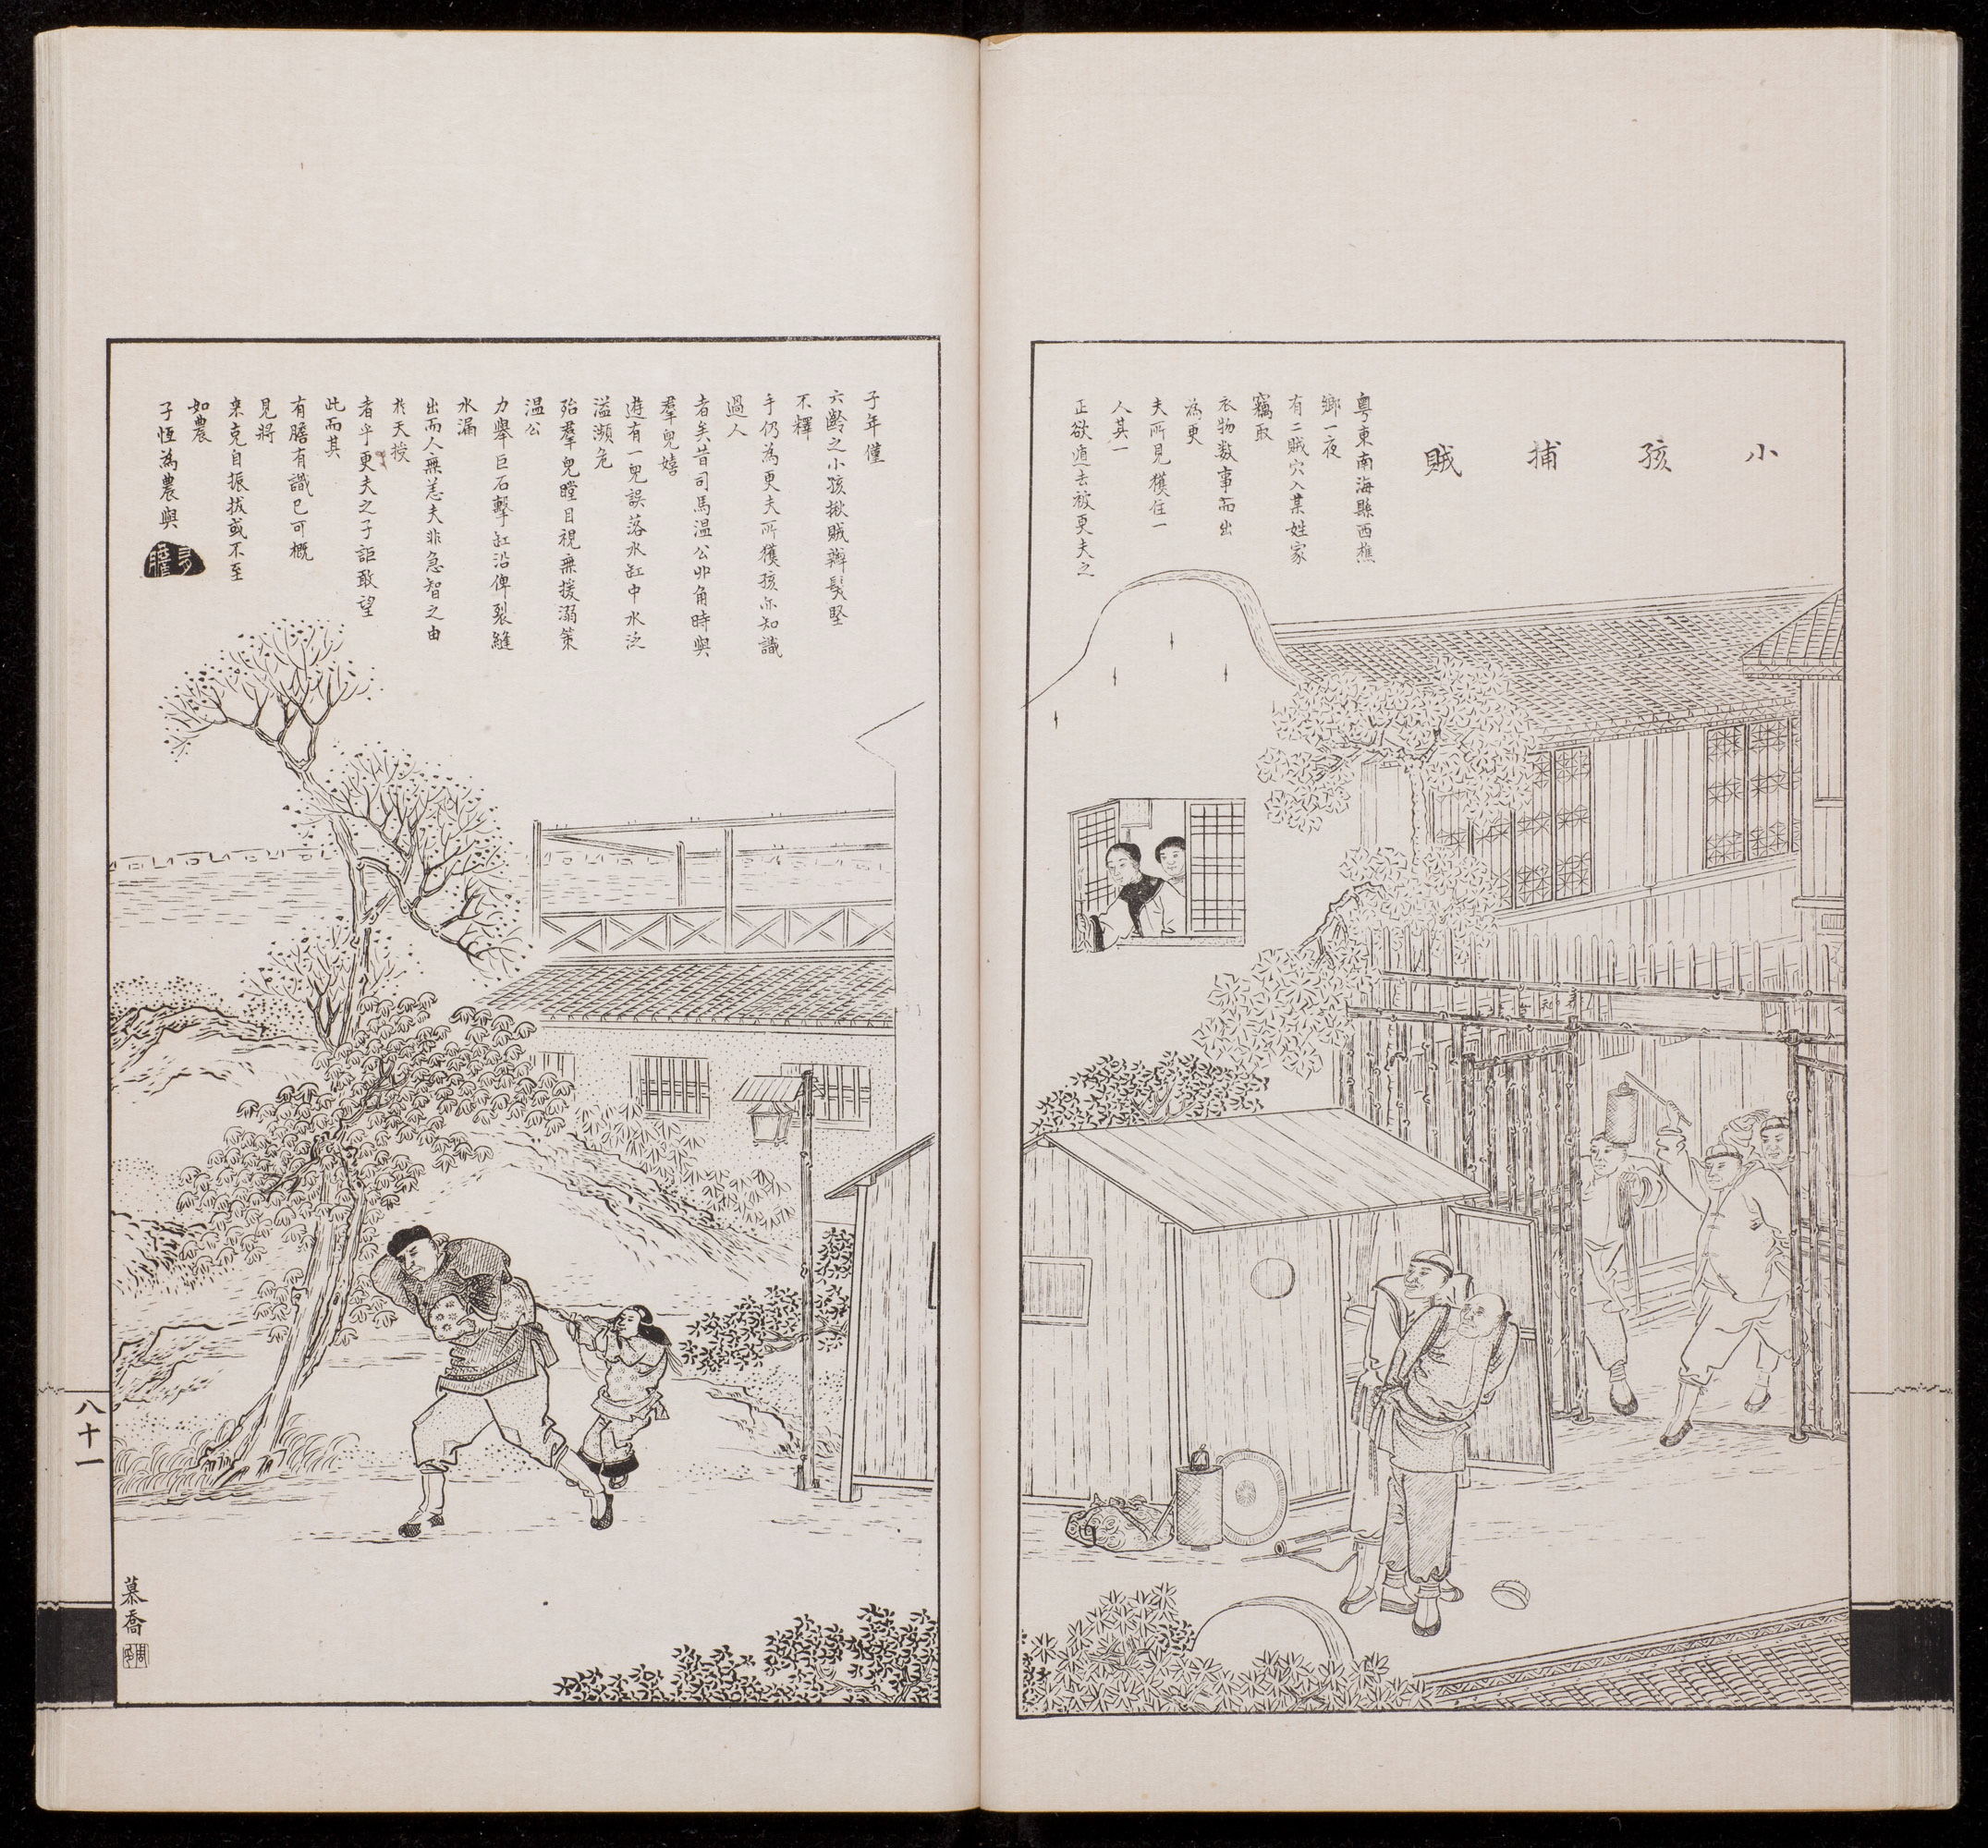 小孩捕賊
粵東南海縣西樵
鄉一夜
有二賊穴入某姓家
竊取
衣物数事而出
為更
夫所見獲住一
人其一
正欲逃去被更夫之
子年僅
六齡之小孩揪賊辮髮堅
不釋
手仍為更夫所獲孩亦知識
過人
者矣昔司馬温公丱角時與
羣兒嬉
遊有一兒誤落水缸中水泛
溢瀕危
殆羣兒瞠目視無援溺策
温公
力舉巨石擊缸沿俾裂縫
水漏
出而人無恙夫非急智之由
於天授
者乎更夫之子詎敢望
此而其
有膽有識已可概
見將
來克自振拔或不至
如農
子恆為農與
八十一
慕喬